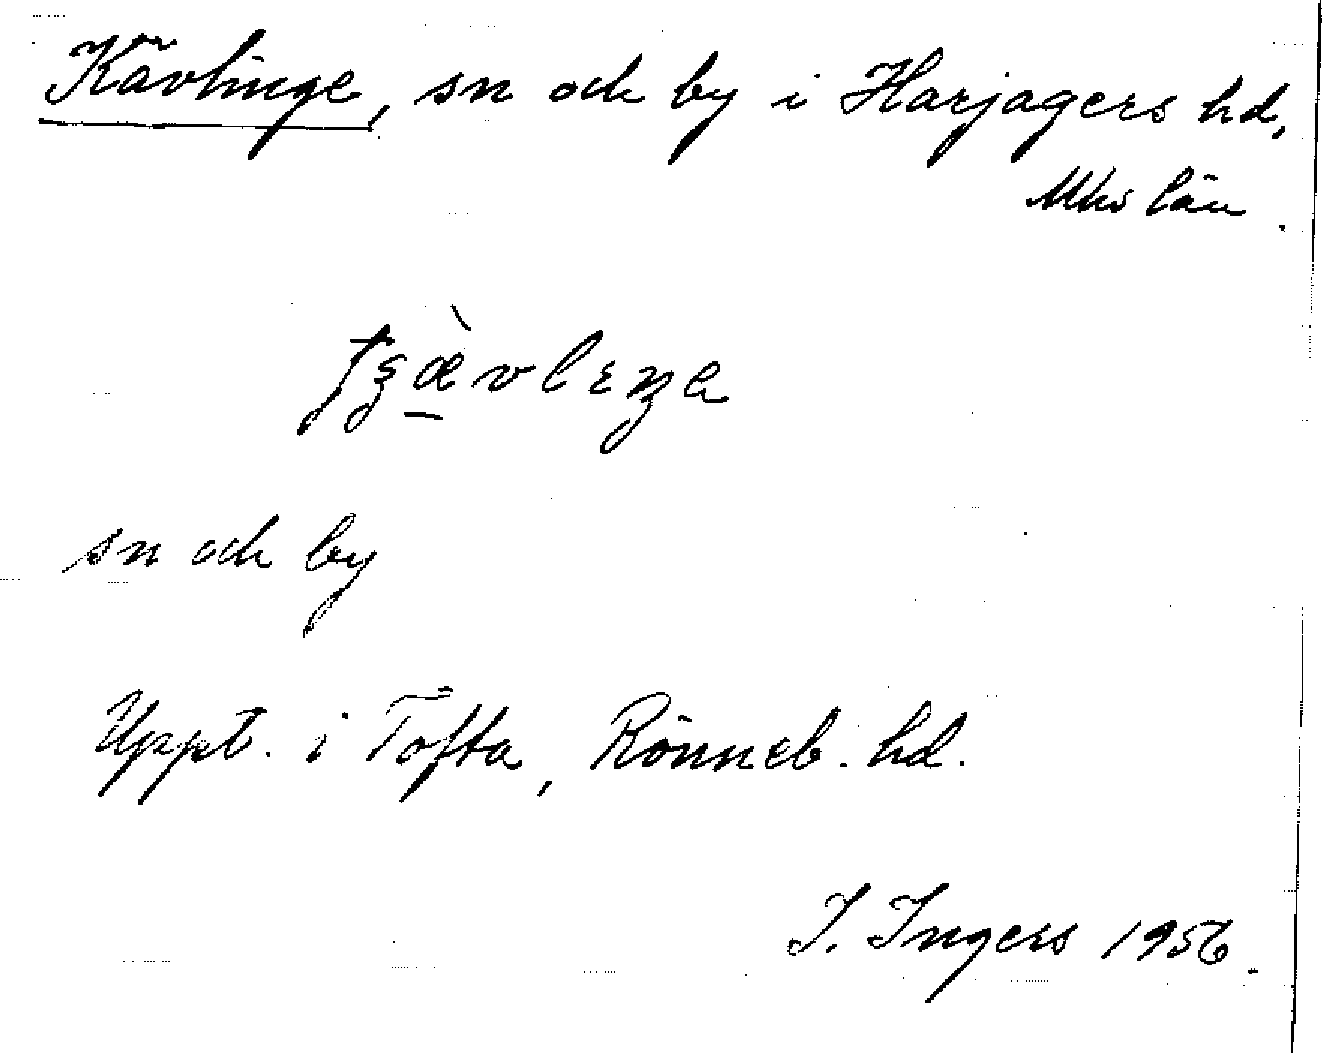 Kävlinge, sn och by i Harjagers hd,
Mhs län.
sn och by
Uppt. i Tofta, Rönneb. hd.
I. Ingers 1956.